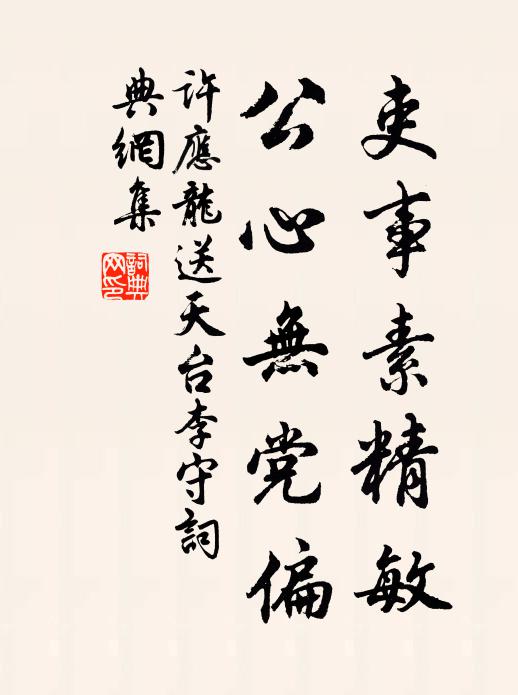 吏事素精敏
公心無党偏
許應龍送天台李守詞
典網集
詞典
网印